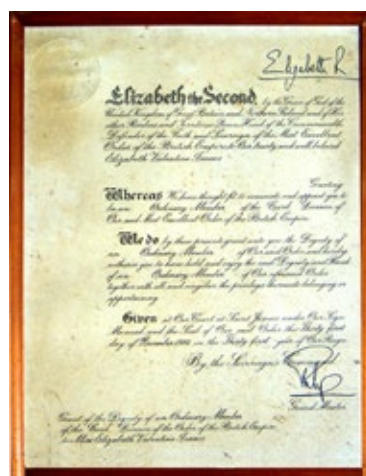 Elizabeth R
Elizabeth the Second, by the Grace of God of the
United Kingdom of Great Britain and Northern Ireland and of Her
other Realms and Territories Queen, Head of the Commonwealth,
Defender of the Faith and Sovereign of the Most Excellent
Order of the British Empire to Our trusty and well beloved
Elizabeth Valentina
Greeting
Whereas We have thought fit to nominate and appoint you to
be an Ordinary Member of the Civil Division of
Our said Most Excellent Order of the British Empire
We do by these presents grant unto you the Dignity of
an Ordinary Member of Our said Order and hereby
authorise you to have hold and enjoy the said Dignity and Rank
of an Ordinary Member of Our aforesaid Order
together with all and singular the privileges thereunto belonging or
appertaining
Given at Our Court at Saint James's under Our Sign
Manual and the Seal of Our said Order this Thirty first
day of December 1982 in the Thirty first year of Our Reign
By the Sovereign's Command
Grand Master
Grant of the Dignity of an Ordinary Member
of the Civil Division of the Order of the British Empire
to Miss Elizabeth Valentina